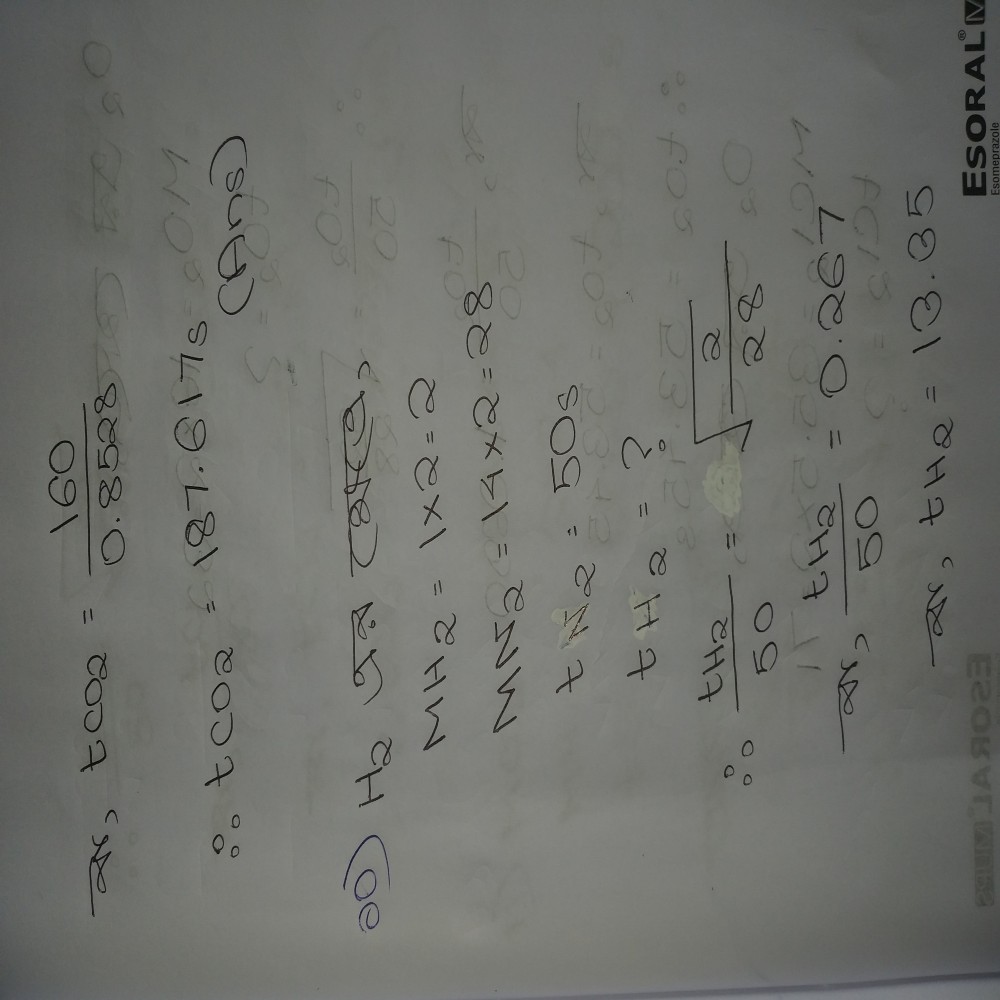 বা, tCO2 = 160 / 0.8528
∴ tCO2 = 187.617s (Ans)
H2 এর ক্ষেত্রে,
MH2 = 1×2=2
MN2 = 14×2=28
tN2 = 50s
tH2 = ?
∴ tH2 / 50 = √2 / 28
বা, tH2 / 50 = 0.267
বা, tH2 = 13.35
ESORAL® M
Esomeprazole